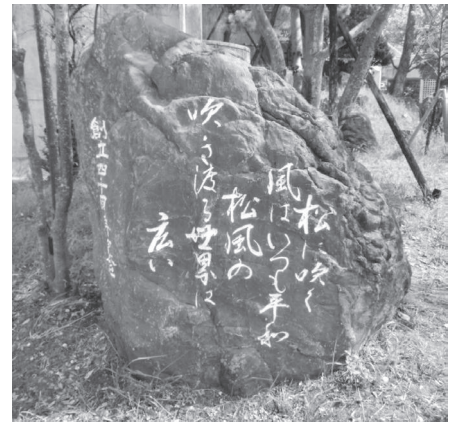 松に吹く
風はいつも平和
松風の
吹き渡る世界は
広い
創立四十周年